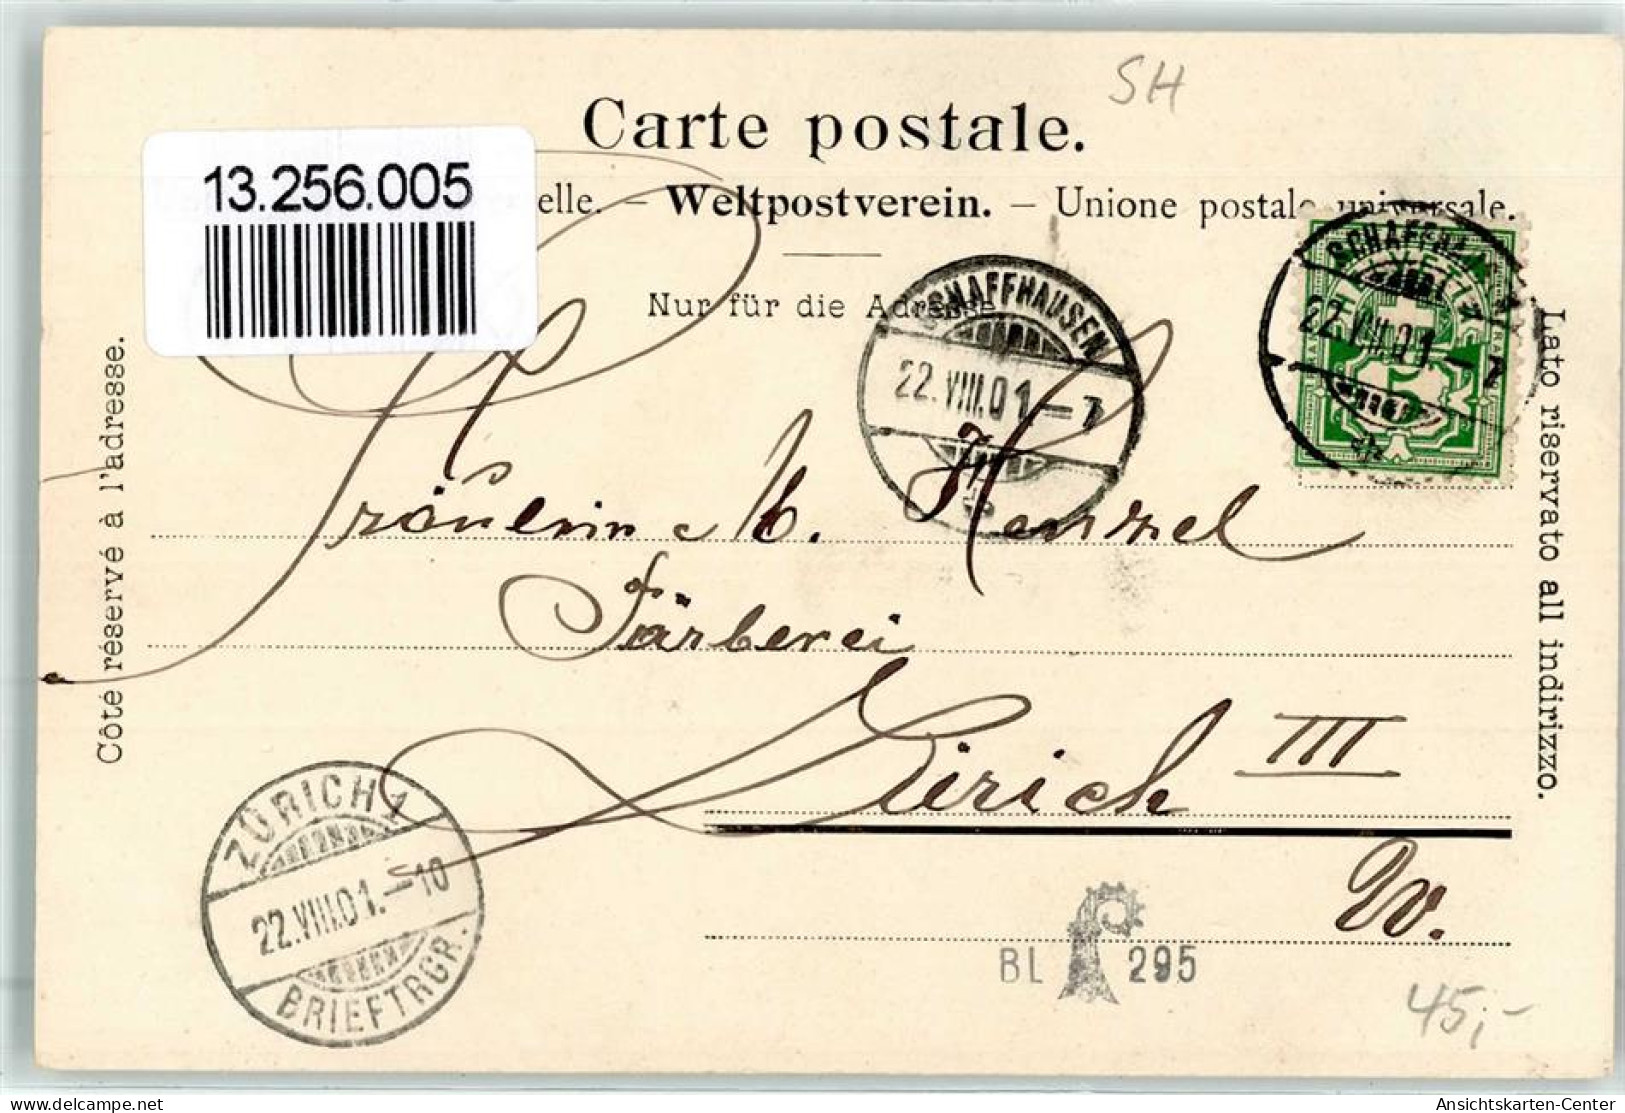 SH
Carte postale.
13.256.005
elle. – Weltpostverein. – Unione postale universale.
Nur für die Adresse
SCHAFFHAUSEN
22.VIII.01–7
SCHAFFHAUSEN
22.VIII.01–7
HELVETIA
FRANCO
5
Côté réservé à l'adresse.
Lato riservato all indirizzo.
Fräulein M. Henzel
Färberei
Zürich III
W.
ZÜRICH 1
22.VIII.01.–10
BRIEFTRGR.
BL 295
45,-
delcampe.net
Ansichtskarten-Center